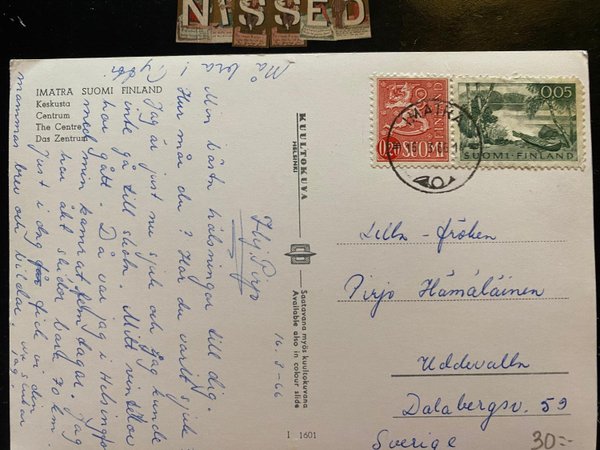 NISSED
IMATRA SUOMI FINLAND
Keskusta
Centrum
The Centre
Das Zentrum
KUULTOKUVA
HELSINKI
Saatavana myös kuultokuvana
Available also in colour slide
I 1601
0,20 SUOMI
0,05
SUOMI-FINLAND
IMATRA
Lilla-fröken
Pirjo Hämäläinen
Uddevalla
Dalabergsv. 59
Sverige
30:-
Hej Pirjo
16.3-66
Min bästa hälsningar till dig.
Hur mår du? Har du varit sjuk?
Jag är just nu sjuk och jag kunde
inte gå till skola. Mitt vinterlov
har gått. Då var jag i Helsingfors
med min kamrat fem dagar. Jag
har åkt skidor bara 70 km.
Just i dag fick vi den
mammas brev och bilder. nu slutar
jag.
Må bra!